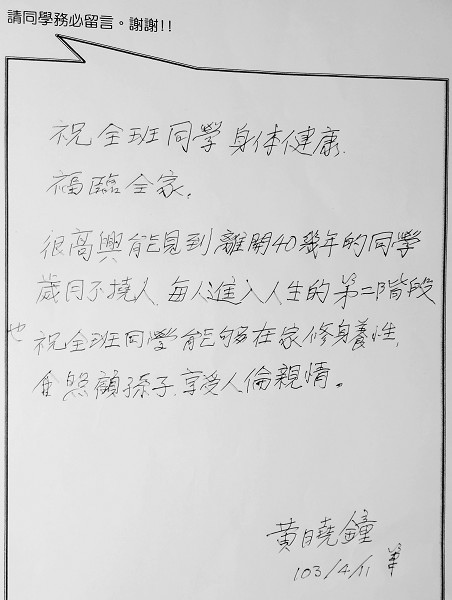 請同學務必留言。謝謝!!
祝全班同學身体健康.
福臨全家.
很高興能見到離開40幾年的同學
歲月不撓人.每人進入人生的第二階段
也祝全班同學能夠在家修身養性,
照顧孫子.享受人倫親情。
黃曉鐘
103/4/11 筆